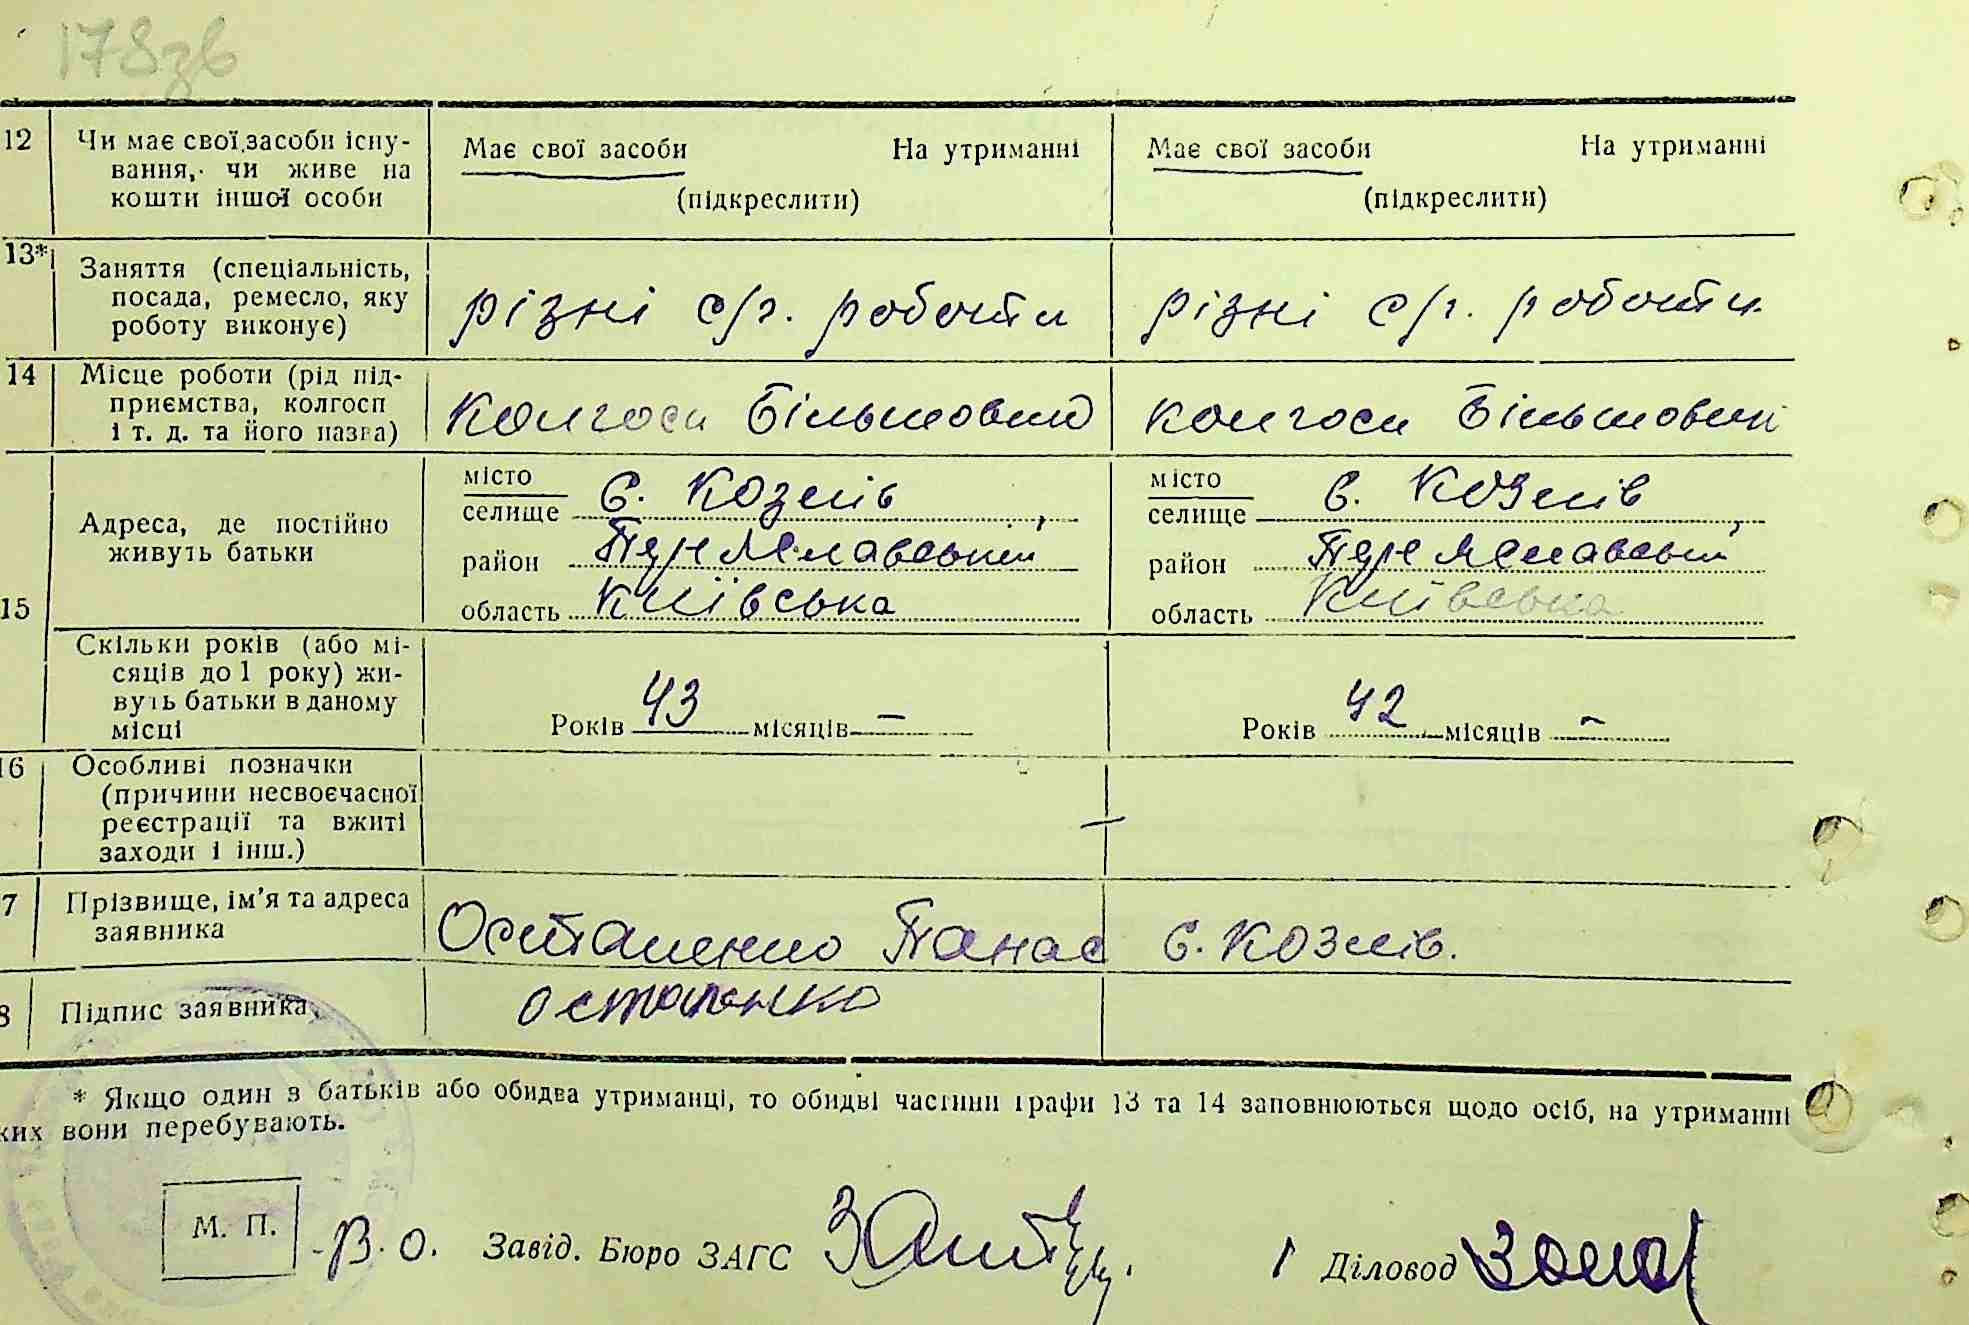 178зв
12 Чи має свої засоби існу- Має свої засоби На утриманні Має свої засоби На утриманні
вання, чи живе на
кошти іншої особи (підкреслити) (підкреслити)
13* Заняття (спеціальність,
посада, ремесло, яку різні с/г. роботи різні с/г. роботи
роботу виконує)
14 Місце роботи (рід під-
приємства, колгосп колгосп Більшовик колгосп Більшовик
і т. д. та його назва)
15 Адреса, де постійно живуть батьки
місто
селище с. Козлів,
район Переяславський
область Київська
місто
селище с. Козлів,
район Переяславський
область Київська
Скільки років (або мі-
сяців до 1 року) жи-
вуть батьки в даному
місці
Років 43 місяців – Років 42 місяців –
16 Особливі позначки
(причини несвоєчасної
реєстрації та вжиті
заходи і інш.) –
7 Прізвище, ім'я та адреса
заявника Остапенко Панас с. Козлів.
8 Підпис заявника Остапенко
* Якщо один з батьків або обидва утриманці, то обидві частини графи 13 та 14 заповнюються щодо осіб, на утриманні
ких вони перебувають.
М. П. В.о. Завід. Бюро ЗАГС Діловод